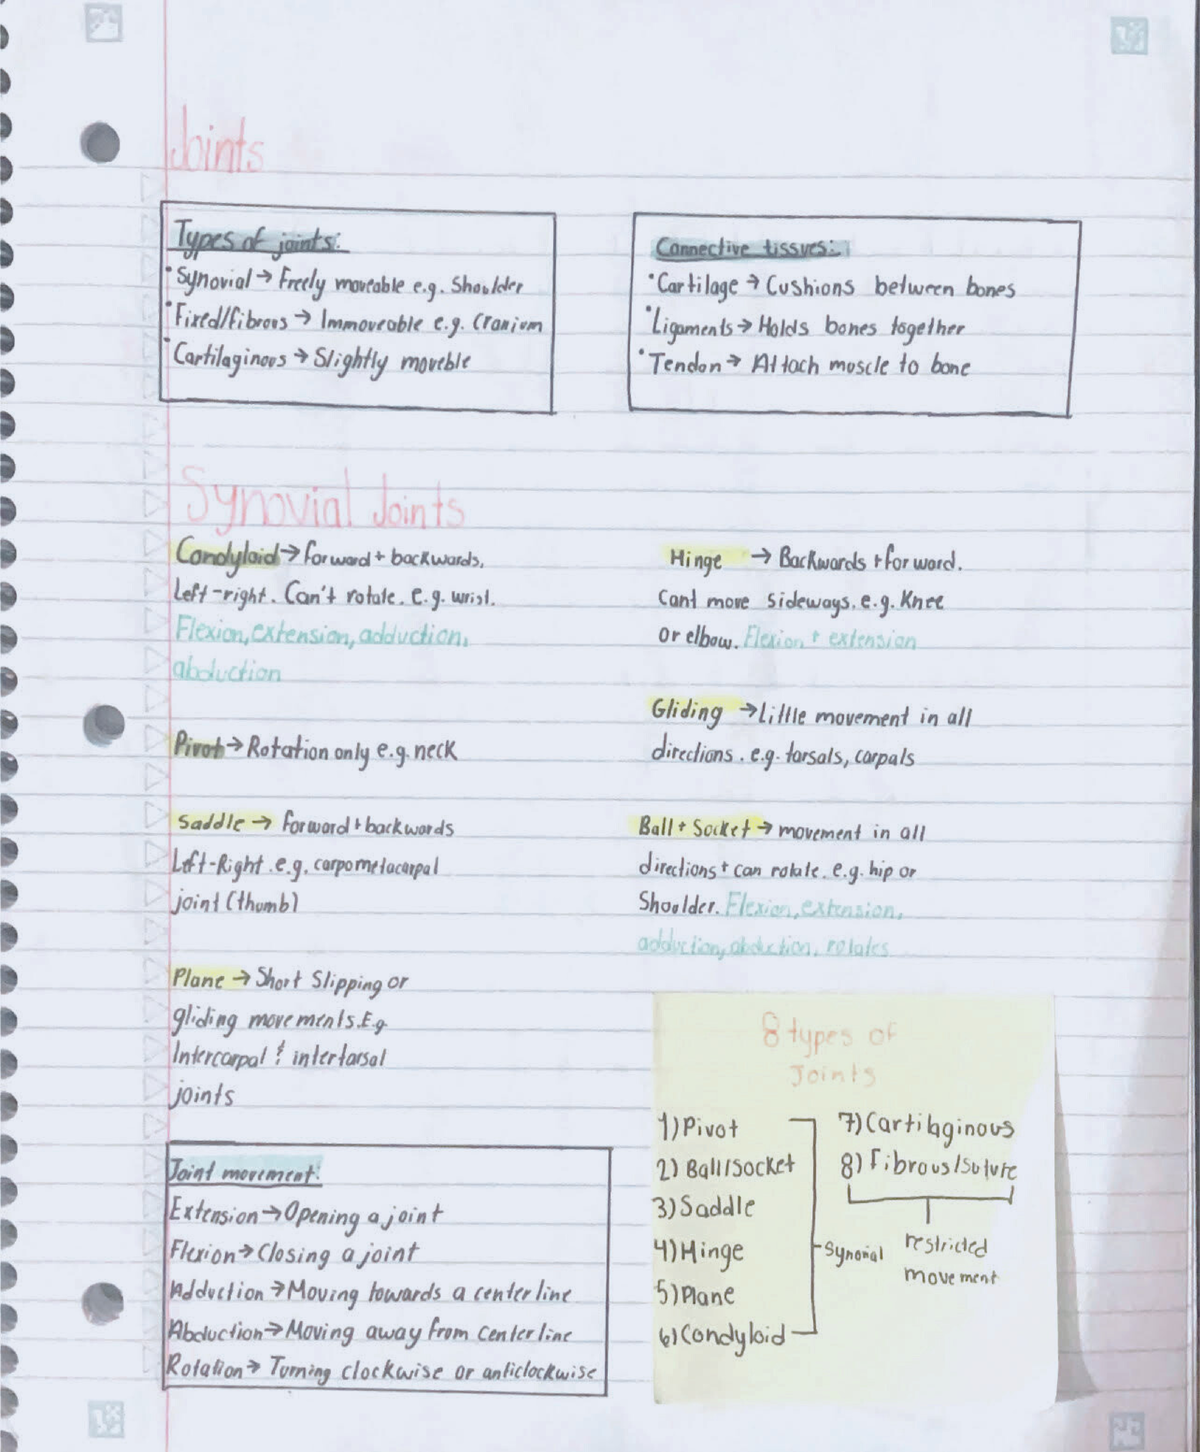 Joints
Types of joints:
•Synovial → Freely moveable e.g. Shoulder
•Fixed/Fibrous → Immoveable e.g. Cranium
•Cartilaginous → Slightly moveble
Connective tissues:
•Cartilage → Cushions between bones
•Ligaments → Holds bones together
•Tendon → Attach muscle to bone
Synovial Joints
Condyloid → forward + backwards,
Left-right. Can't rotate. e.g. wrist.
Flexion, extension, adduction,
abduction
Pivot → Rotation only e.g. neck
Saddle → forward + backwards
Left-Right. e.g. carpometacarpal
joint (thumb)
Plane → Short Slipping or
gliding movements. E.g
Intercarpal & intertarsal
joints
Hinge → Backwards + forward.
Cant move sideways. e.g. Knee
or elbow. Flexion + extension
Gliding → Little movement in all
directions. e.g. tarsals, carpals
Ball + Socket → movement in all
directions + can rotate. e.g. hip or
Shoulder. Flexion, extension,
adduction, abduction, rotates
Joint movement:
Extension → Opening a joint
Flexion → Closing a joint
Adduction → Moving towards a center line
Abduction → Moving away from center line
Rotation → Turning clockwise or anticlockwise
8 types of
Joints
1) Pivot
2) Ball/Socket
3) Saddle
4) Hinge
5) Plane
6) Condyloid
Synovial
7) Cartilaginous
8) Fibrous/Suture
restricted
movement